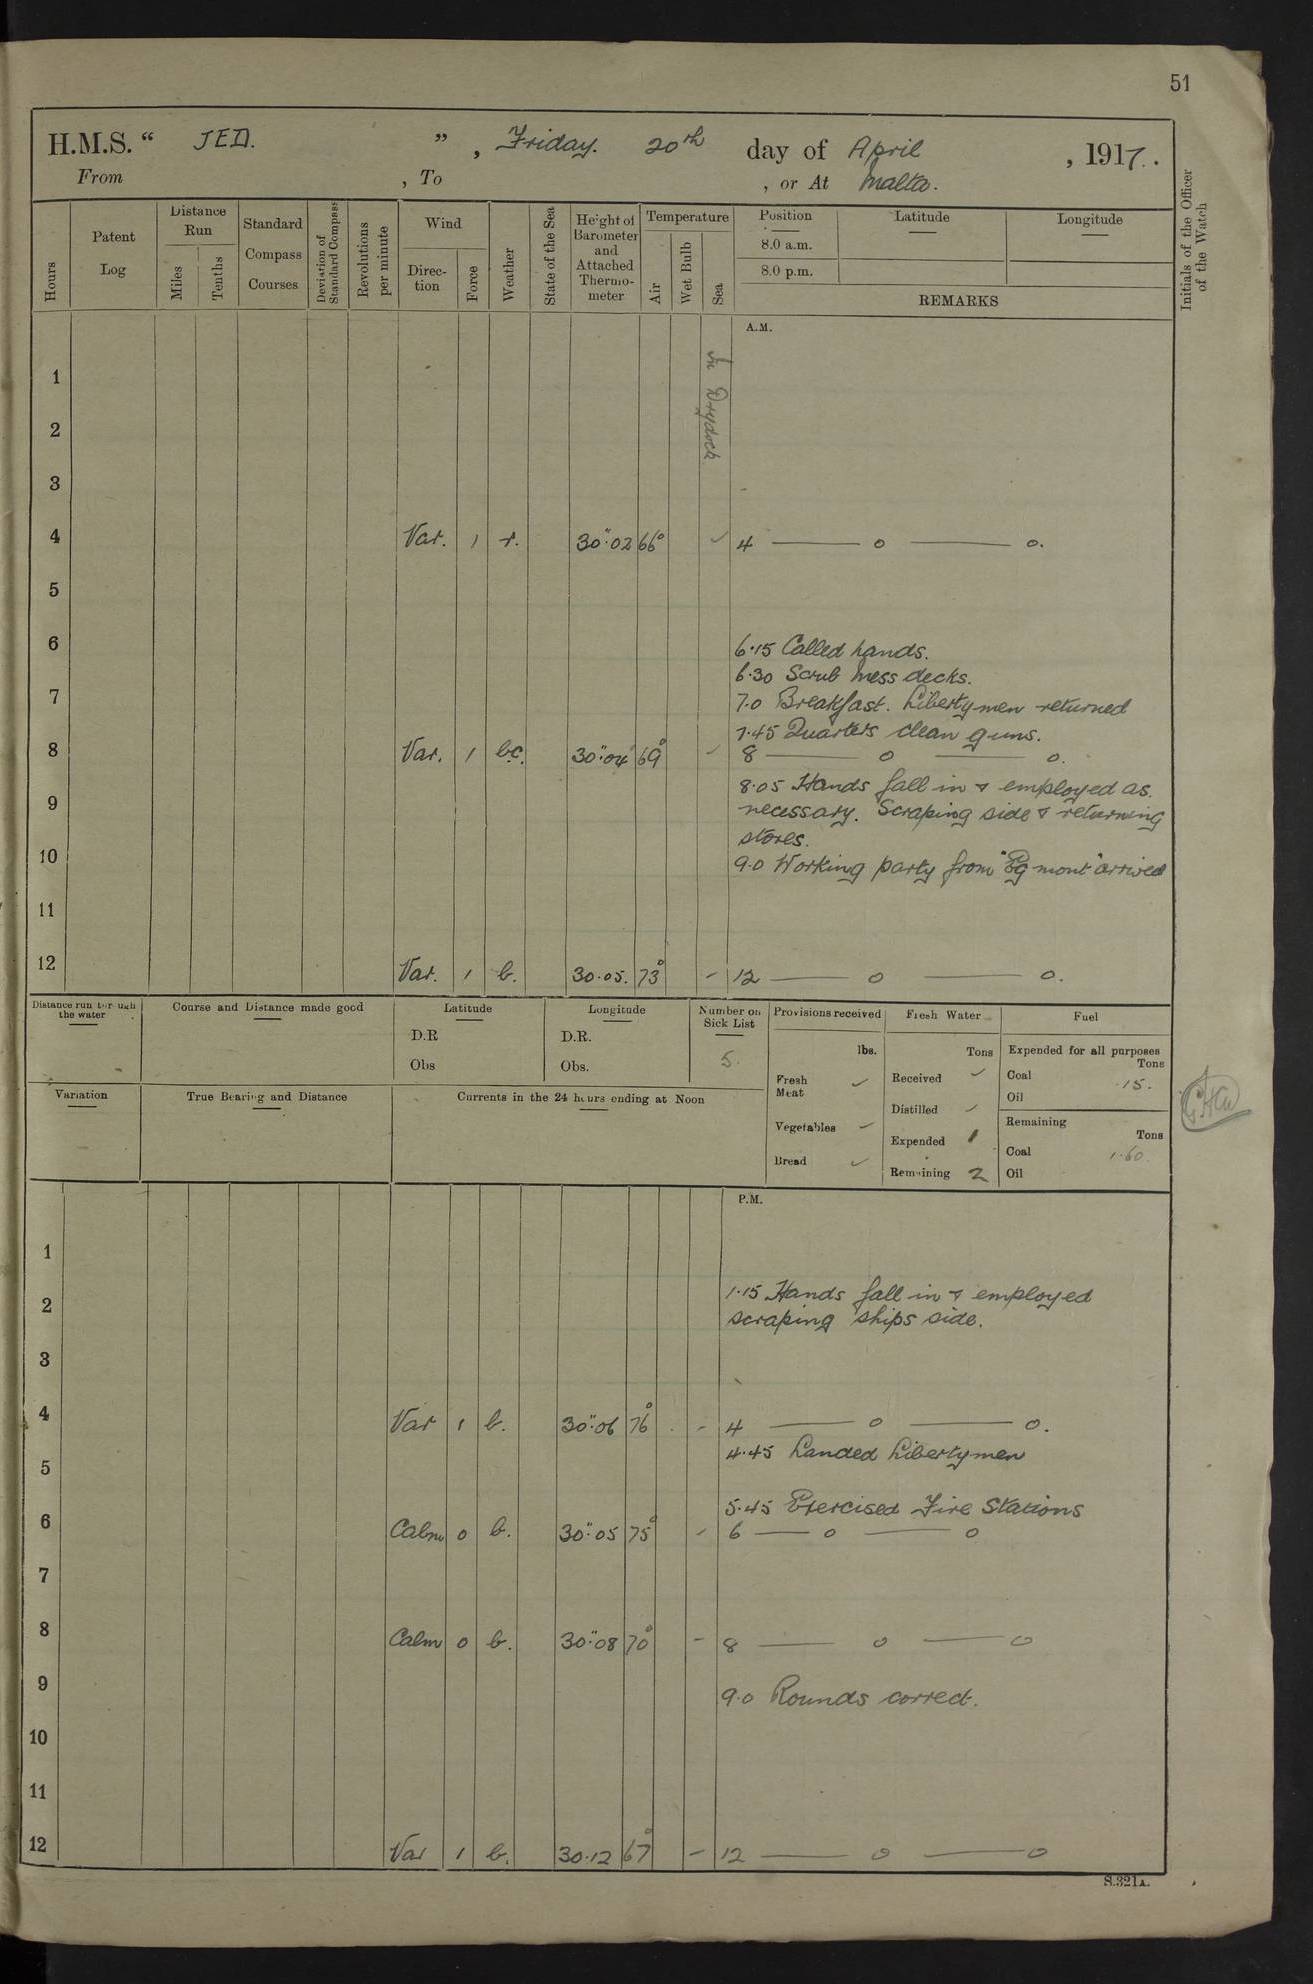 51
H.M.S. " JED. ", Friday. 20th day of April, 1917.
From , To , or At Malta.
Hours
Patent Log
Distance Run
Miles
Tenths
Standard Compass Courses
Deviation of Standard Compass
Revolutions per minute
Wind
Direction
Force
Weather
State of the Sea
Height of Barometer and Attached Thermometer
Temperature
Air
Wet Bulb
Sea
Position
Latitude
Longitude
8.0 a.m.
8.0 p.m.
REMARKS
Initials of the Officer of the Watch
A.M.
In Drydock
1
2
3
4 Var. 1 r. 30".02 66° ✓ 4 —— o —— o.
5
6
6.15 Called hands.
6.30 Scrub mess decks.
7
7.0 Breakfast. Libertymen returned
7.45 Quarters clean guns.
8 Var. 1 bc. 30".04 69° - 8 —— o —— o.
8.05 Hands fall in & employed as
9
necessary. Scraping side & returning
stores.
10
9.0 Working party from "Egmont" arrived
11
12 Var. 1 b. 30.05. 73° - 12 —— o —— o.
Distance run through the water
Course and Distance made good
Latitude
D.R
Obs
Longitude
D.R.
Obs.
Number on Sick List
5.
Provisions received
lbs.
Fresh Meat ✓
Vegetables ✓
Bread ✓
Fresh Water
Tons
Received ✓
Distilled ✓
Expended 1
Remaining 2
Fuel
Expended for all purposes
Tons
Coal .15.
Oil
Remaining
Tons
Coal 1.60.
Oil
Variation
True Bearing and Distance
Currents in the 24 hours ending at Noon
P.M.
1
1.15 Hands fall in & employed
2
scraping ships side.
3
4 Var 1 b. 30".06 76° - 4 —— o —— o.
4.45 Landed Libertymen
5
5.45 Exercised Fire Stations
6 Calm 0 b. 30".05 75° - 6 —— o —— o
7
8 Calm 0 b. 30".08 70° - 8 —— o —— o
9
9.0 Rounds correct.
10
11
12 Var 1 b. 30.12 67° - 12 —— o —— o
S.321A.